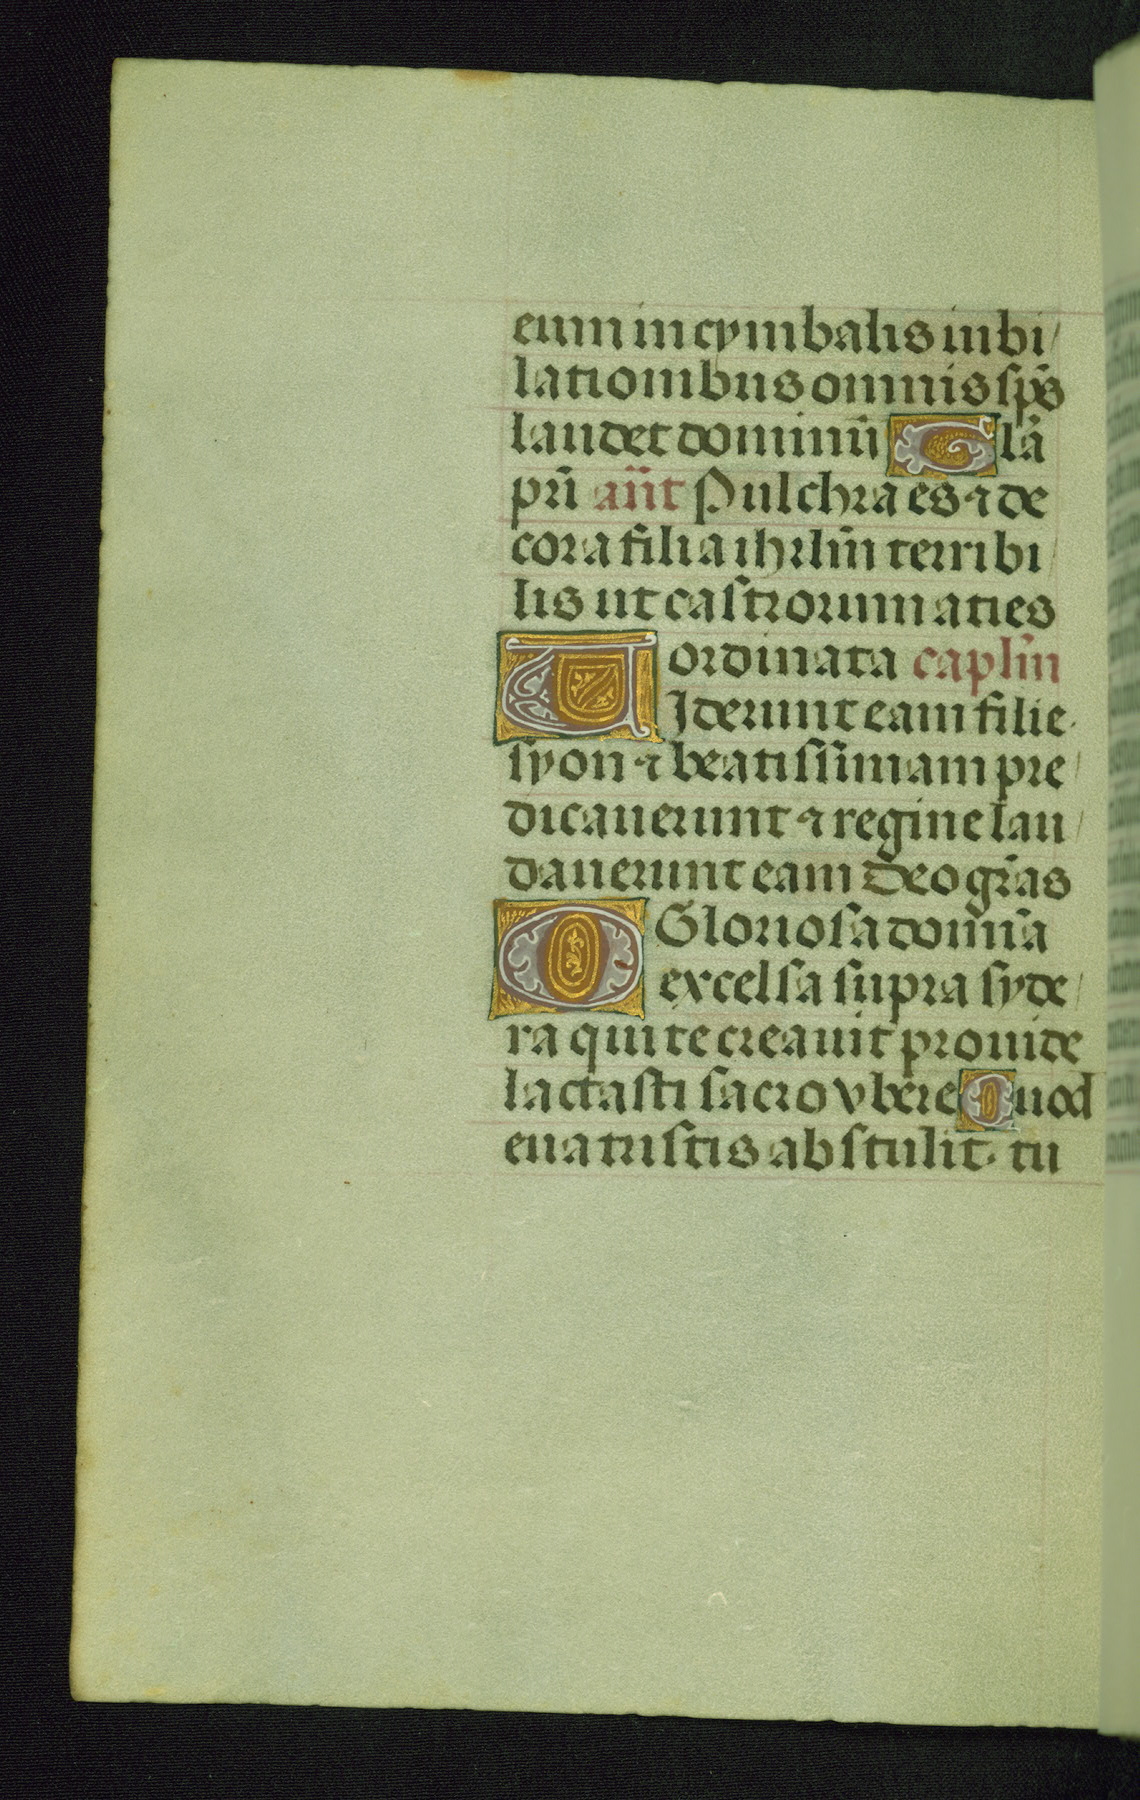 eum in cymbalis iubi/
lationibus omnis sp̄s
laudet dominū Glā
pr̄i an̄t Pulchra es ⁊ de
cora filia ihrlm̄ terribi/
lis ut castrorum aties
ordinata caplm̄
VIderunt eam filie.
syon ⁊ beatissīmam pre/
dicauerunt ⁊ regine lau/
dauerunt eam Deo gr̄as
O Gloriosa domīa
excelsa supra syde/
ra qui te creauit prouide
lactasti sacro vbere Quod
eua tristis abstulit. tu